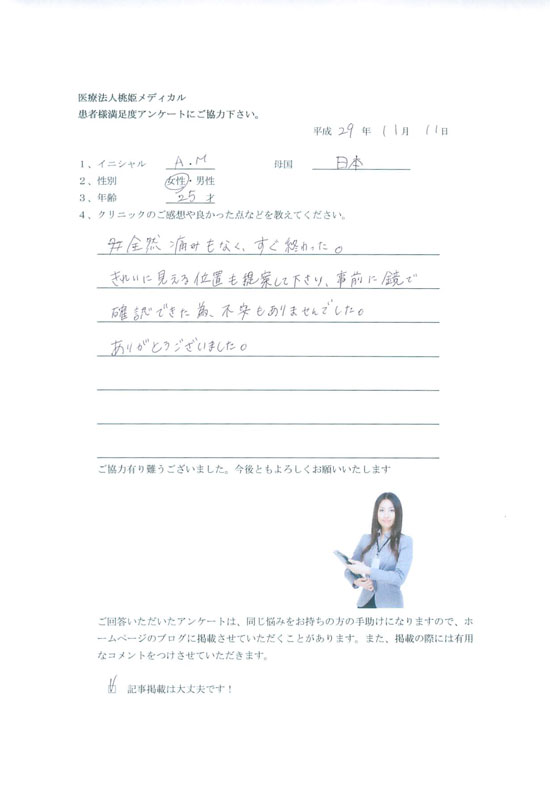 医療法人桃姫メディカル
患者様満足度アンケートにご協力下さい。
平成 29 年 11月 11日
1、イニシャル A.M 母国 日本
2、性別 女性・男性
3、年齢 25 才
4、クリニックのご感想や良かった点などを教えてください。
全然痛みもなく、すぐ終わった。
きれいに見える位置も提案して下さり、事前に鏡で
確認できた為、不安もありませんでした。
ありがとうございました。
ご協力有り難うございました。今後ともよろしくお願いいたします
ご回答いただいたアンケートは、同じ悩みをお持ちの方の手助けになりますので、ホ
ームページのブログに掲載させていただくことがあります。また、掲載の際には有用
なコメントをつけさせていただきます。
記事掲載は大丈夫です！